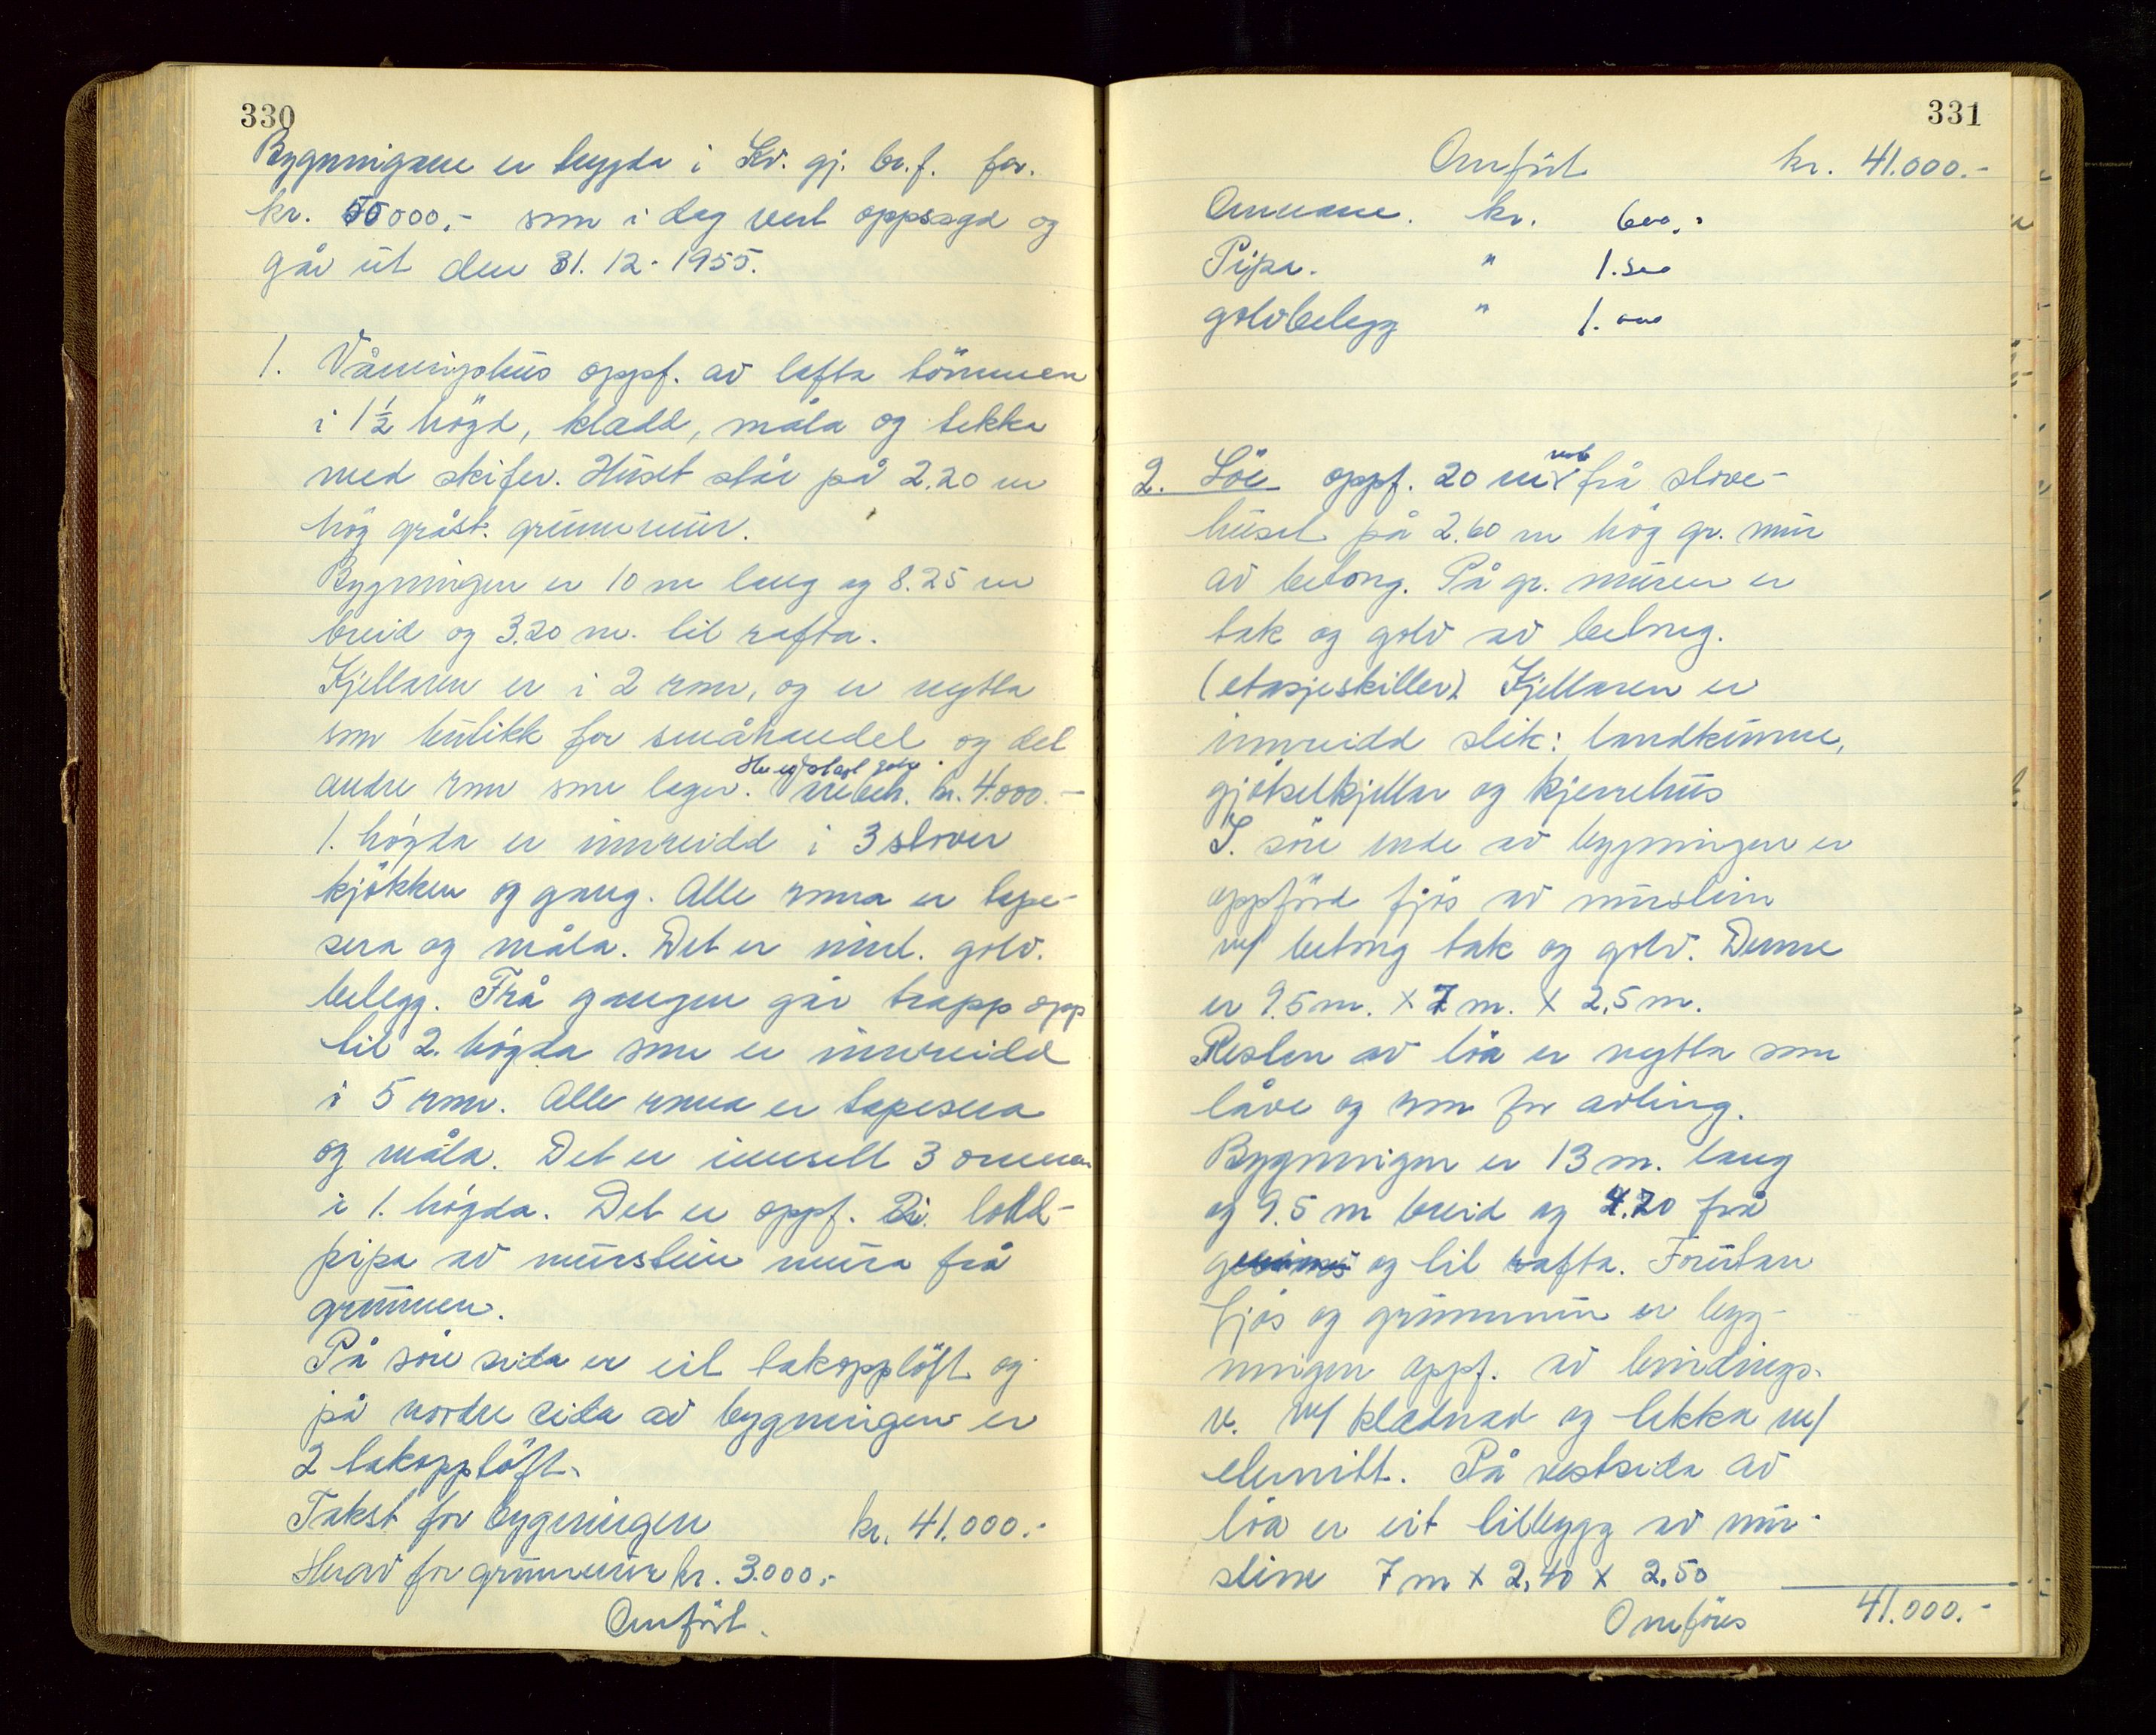 330
Bygningane er trygda i Sv. gj. br. f. for.
kr. 50000,- som i dag vert oppsagd og
går ut den 31. 12. 1955.
1. Våningshus oppf. av lafta tömmer
i 1½ högd, kledd, måla og tekka
med skifer. Huset står på 2.20 m
hög gråst. grunnmur.
Bygningen er 10 m lang og 8.25 m
breid og 3.20 m. til rafta.
Kjellaren er i 2 rom, og er nytta
som butikk for småhandel og det
andre rom som lager. kr. 4.000.-
1. högda er innreidd i 3 stover
kjökken og gang. Alle romma er tape-
sera og måla. Det er innl. golv.
belegg. Frå gangen går trapp opp
til 2. högda som er innreidd
i 5 rom. Alle romma er tapesera
og måla. Det er innsett 3 omnar
i 1. högda. Det er oppf. lodd-
pipa av murstein mura frå
grunnen.
På söre sida er eit takopplöft og
på nordre sida av bygningen er
2 takopplöft.
Takst for bygningen kr. 41.000.-
Herav for grunnmur kr. 3.000,-
Omfört.
331
Omfört kr. 41.000.-
Omnane. kr. 600,-
Pipa. " 1.500
golvbelegg " 1.000
2. Löe oppf. 20 m vest frå stove-
huset på 2.60 m hög gr. mur
av betong. På gr. muren er
tak og golv av betong.
(etasjeskiller). Kjellaren er
innreidd slik: landkumme,
gjödselkjellar og kjerrehus
I. söre ende av bygningen er
oppförd fjös av murstein
m/ betong tak og golv. Denne
er 9.5 m. x 7 m. x 2.5 m.
Resten av löa er nytta som
låve og rom for avling.
Bygningen er 13 m. lang
og 9.5 m breid og 4.70 frå
og til rafta. Forutan
fjös og grunnmur er byg-
ningen oppf. av bindings-
v. m/ kledning og tekka m/
eternitt. På vestsida av
löa er eit tilbygg av mur-
stein 7 m x 2,40 x 2.50
Omföres 41.000.-